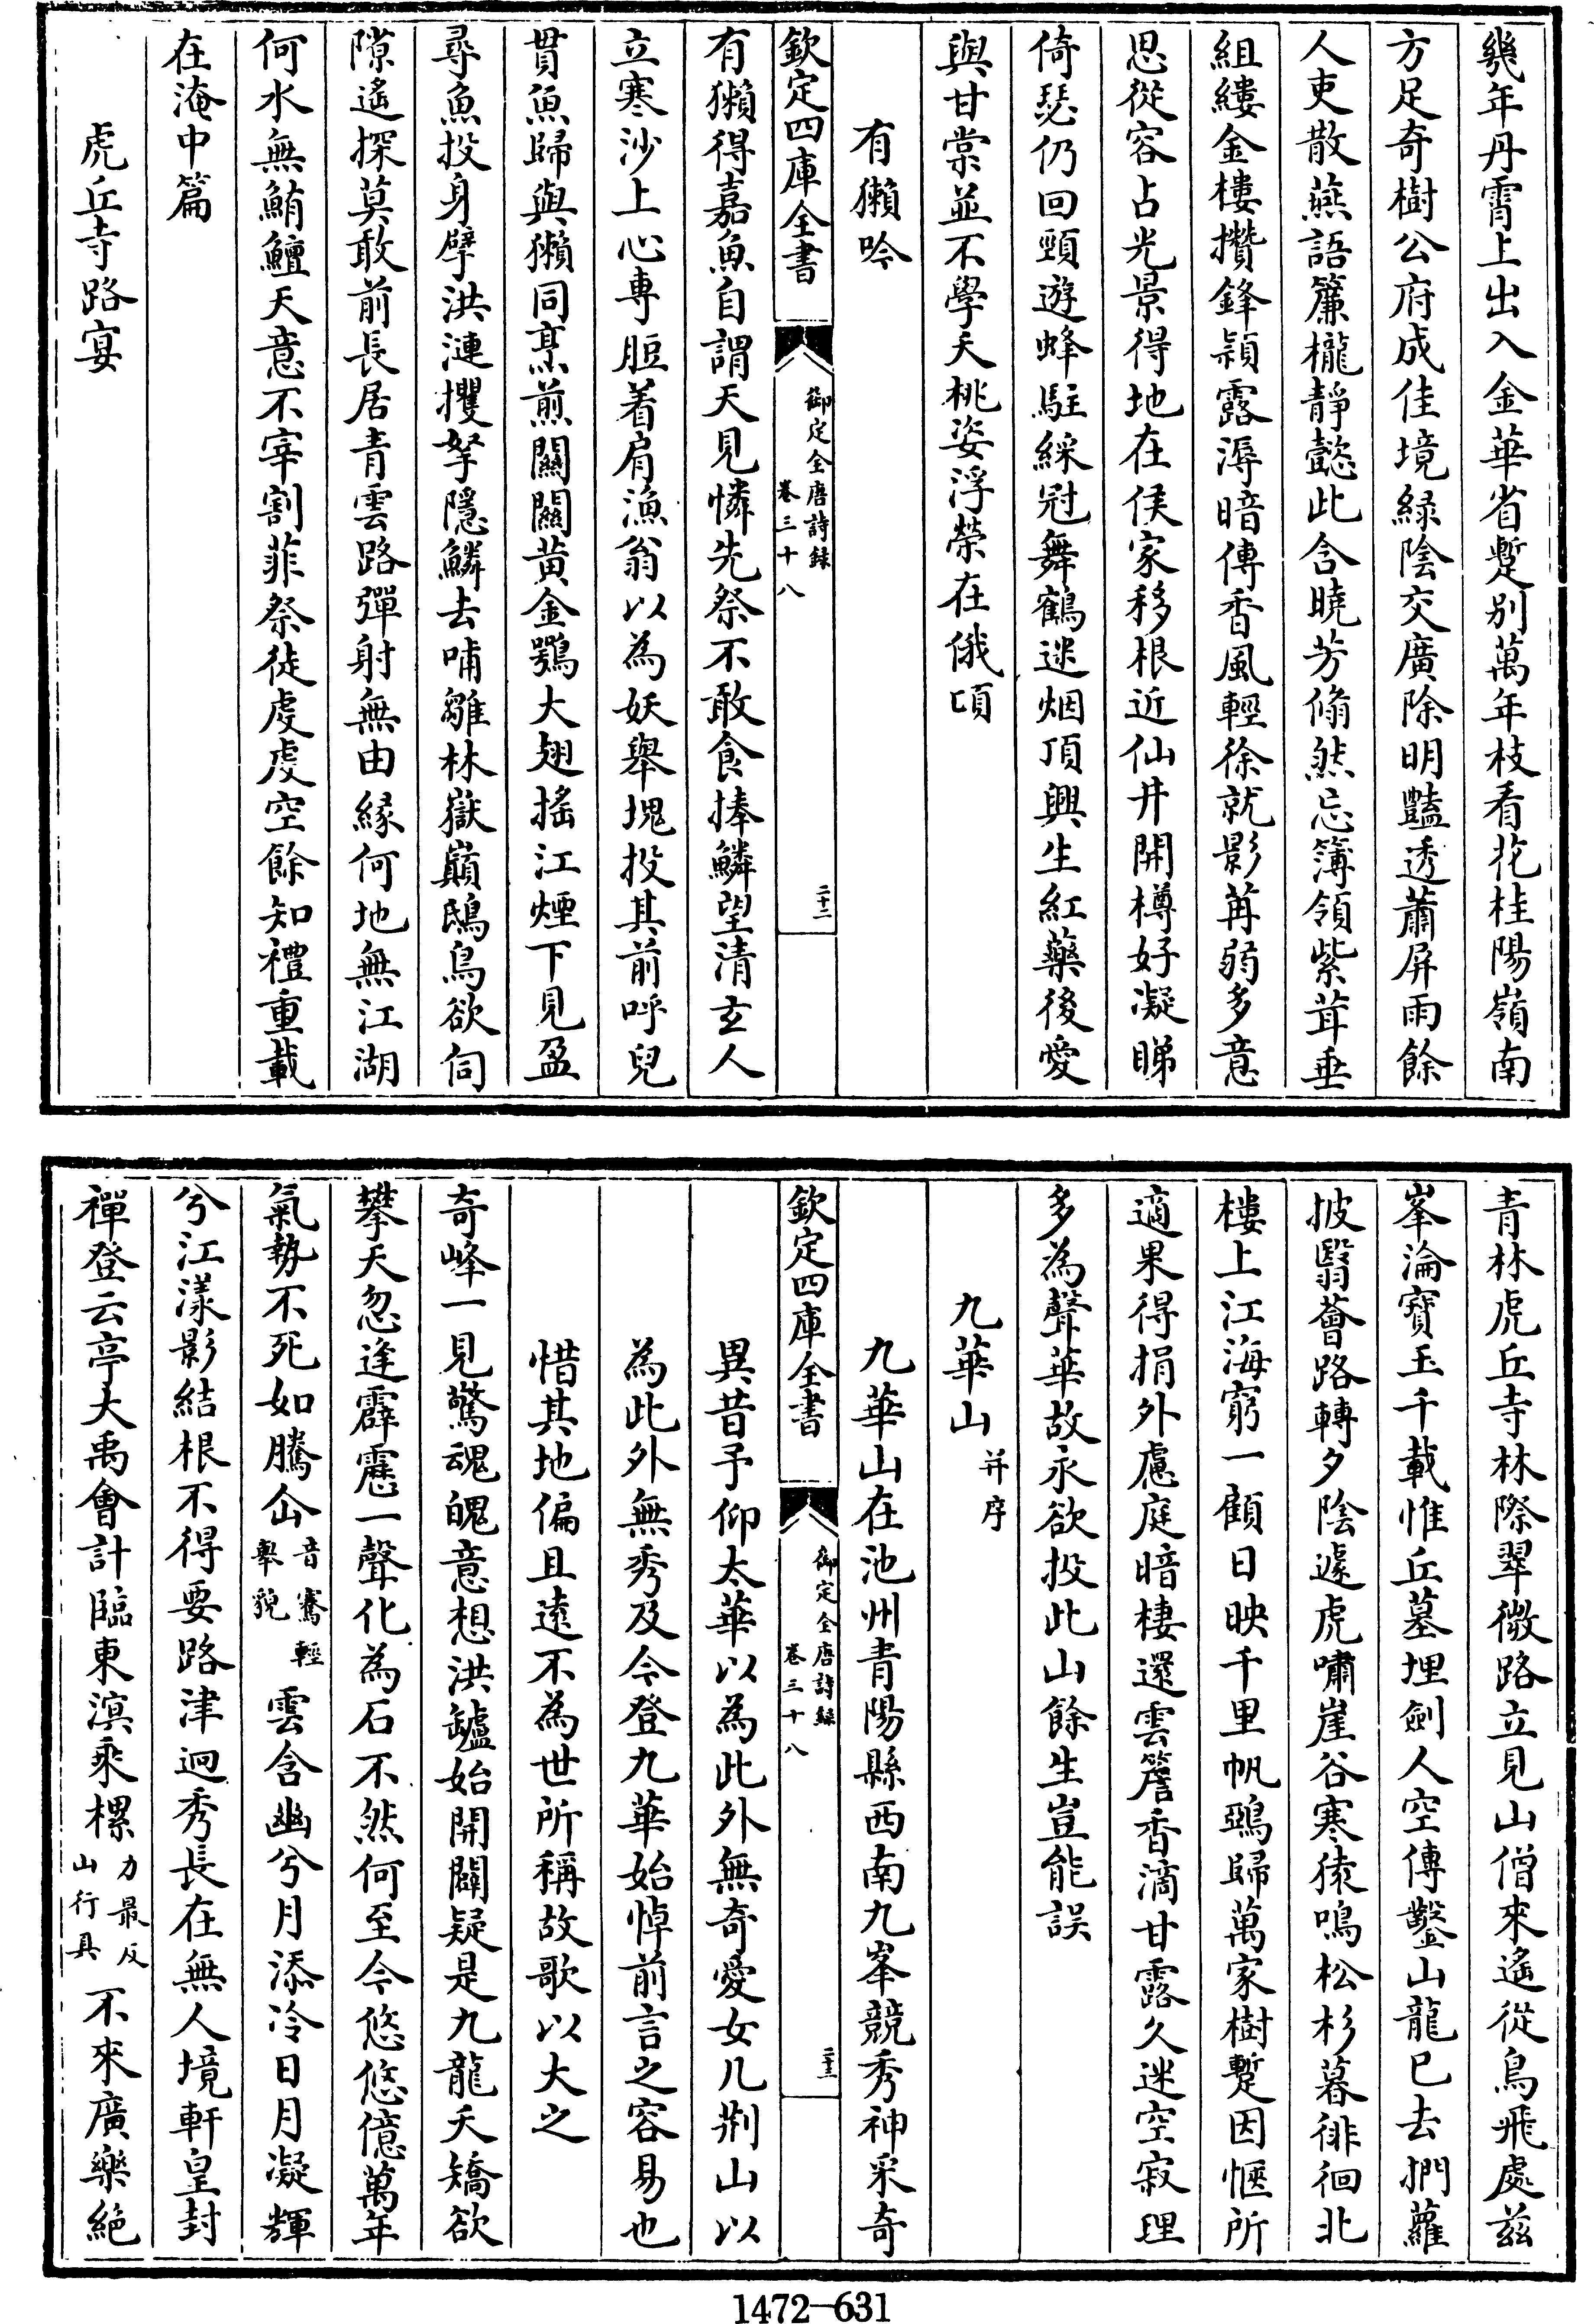 幾年丹霄上出入金華省蹔别萬年枝看花桂陽嶺南
方足奇樹公府成佳境緑陰交廣除明豔透蕭屏雨餘
人吏散燕語簾櫳靜懿此含曉芳翛然忘簿領紫茸垂
組縷金樓攢鋒穎露溽暗傳香風輕徐就影苒弱多意
思從容占光景得地在侯家移根近仙井開樽好凝睇
倚瑟仍回頸遊蜂駐綵冠舞鶴迷烟頂興生紅藥後愛
與甘棠並不學夭桃姿浮榮在俄頃
有獺吟
欽定四庫全書
御定全唐詩録
卷三十八
二十二
有獺得嘉魚自謂天見憐先祭不敢食捧鱗望清玄人
立寒沙上心專脰着肩漁翁以為妖舉塊投其前呼兒
貫魚歸與獺同烹煎闗闗黄金鶚大翅摇江煙下見盈
尋魚投身擘洪漣攫拏隱鱗去哺雛林嶽巔鴟烏欲伺
隙遙探莫敢前長居青雲路彈射無由緣何地無江湖
何水無鮪鱣天意不宰割菲祭徒虔虔空餘知禮重載
在淹中篇
虎丘寺路宴
青林虎丘寺林際翠微路立見山僧來遙從鳥飛處兹
峯淪寶玉千載惟丘墓埋劍人空傳鑿山龍已去捫蘿
披翳薈路轉夕陰遽虎嘯崖谷寒猿鳴松杉暮徘徊北
樓上江海窮一顧日映千里帆鴉歸萬家樹蹔因愜所
適果得捐外慮庭暗棲還雲簷香滴甘露久迷空寂理
多為聲華故永欲投此山餘生豈能誤
九華山并序
九華山在池州青陽縣西南九峯競秀神采奇
欽定四庫全書
御定全唐詩録
卷三十八
二十三
異昔予仰太華以為此外無奇愛女几荆山以
為此外無秀及今登九華始悼前言之容易也
惜其地偏且遠不為世所稱故歌以大之
奇峰一見驚魂魄意想洪罏始開闢疑是九龍夭矯欲
攀天忽逢霹靂一聲化為石不然何至今悠悠億萬年
氣勢不死如騰仚音騫輕舉貌雲含幽兮月添冷日月凝輝
兮江漾影結根不得要路津迥秀長在無人境軒皇封
禪登云亭大禹會計臨東溟乘樏力最反山行具不來廣樂絕
1472—631